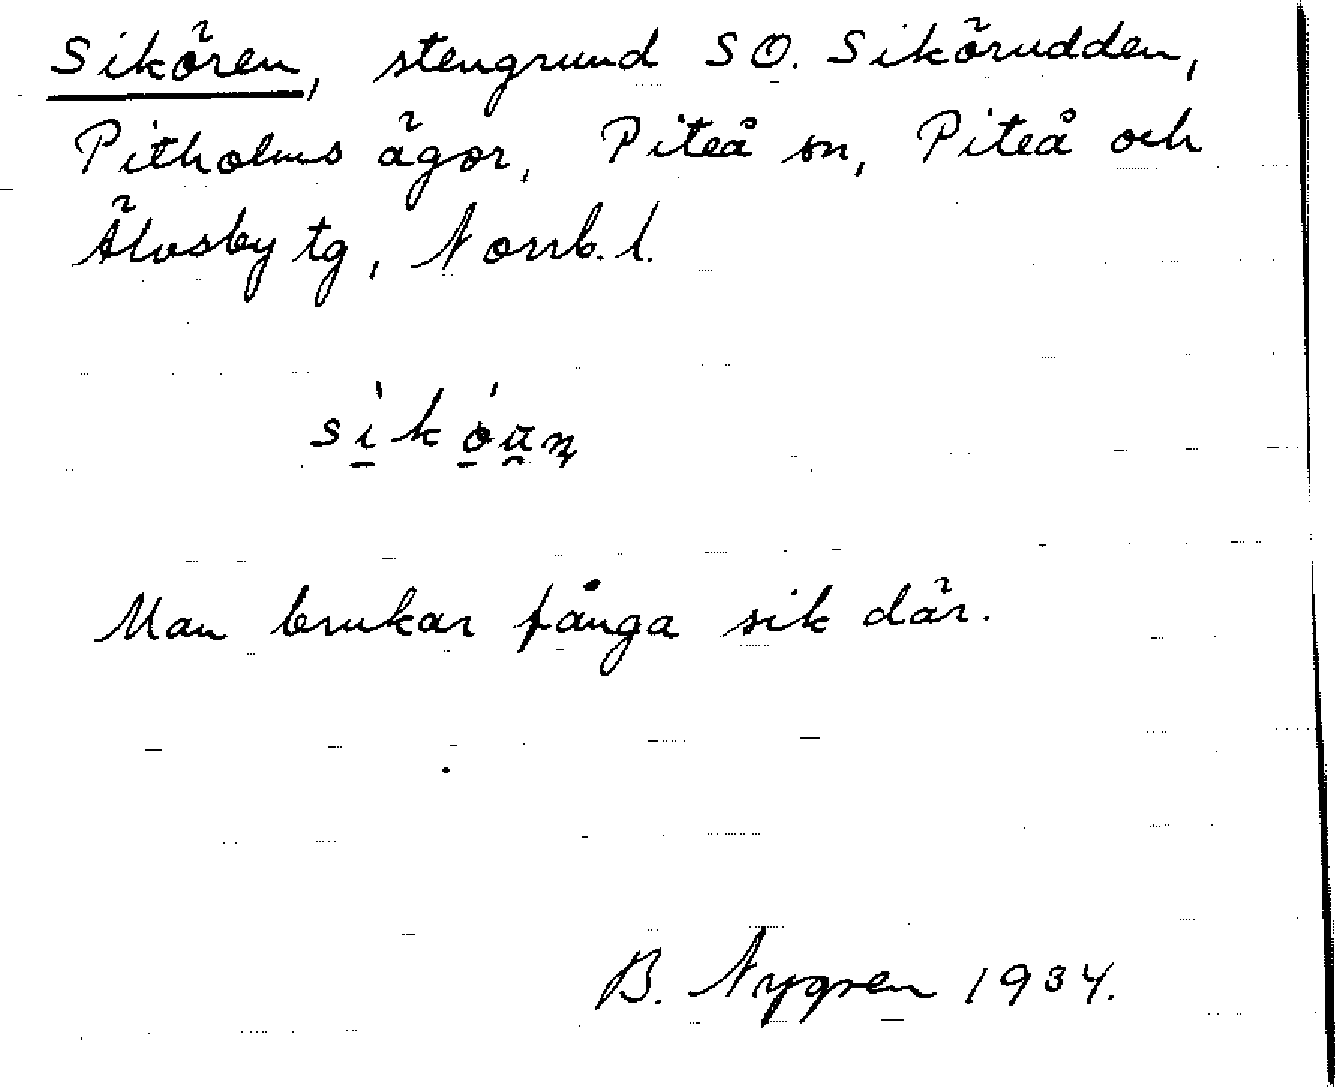 Sikören, stengrund SO. Sikörudden,
Pitholms ägor, Piteå sn, Piteå och
Älvsby tg, Norrb. l.
Man brukar fånga sik där.
B. Nygren 1934.